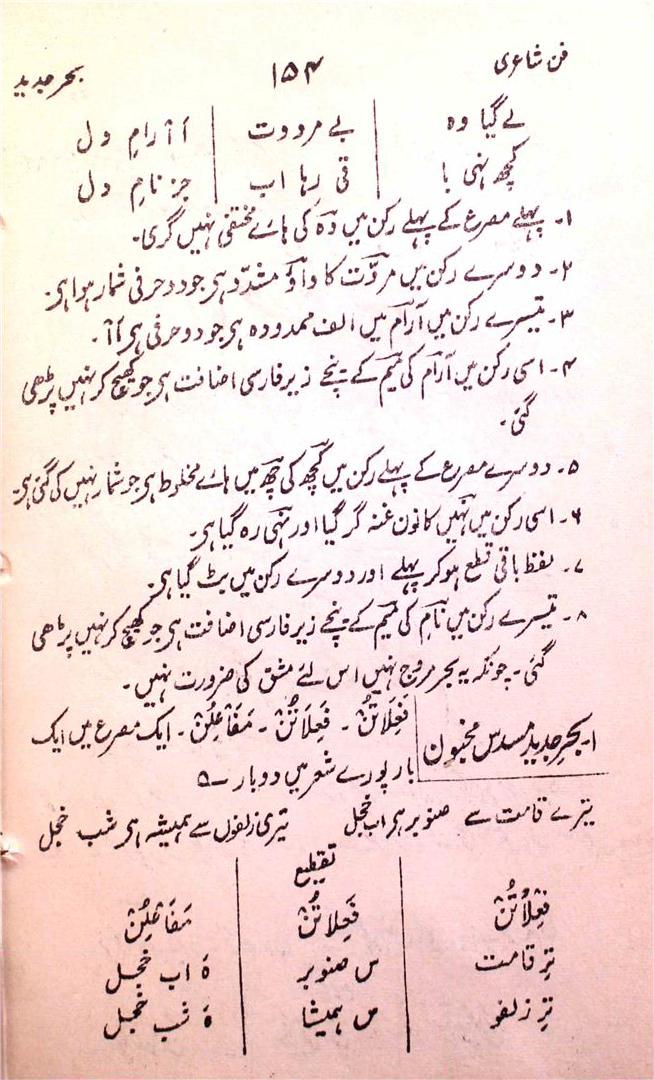 فن شاعری ۱۵۴ بحر جدید
لے گیا وہ بے مرووت اَاْرامِ دل
کچھ نہی با قی رہا اب جز نامِ دل
۱۔ پہلے مصرع کے پہلے رکن میں وہ کی ہائے مختفی نہیں گری۔
۲۔ دوسرے رکن میں مروّت کا واؤ مشدّد ہی جو دو حرفی شمار ہوا ہی۔
۳۔ تیسرے رکن میں آرام میں الف ممدودہ ہی جو دو حرفی ہی اَاْ۔
۴۔ اسی رکن میں آرام کی میم کے نیچے زیر فارسی اضافت ہی جو کھینچ کر نہیں پڑھی
گئی۔
۵۔ دوسرے مصرع کے پہلے رکن میں کچھ کی چھ میں ہائے مخلوط ہی جو شمار نہیں کی گئی ہی۔
۶۔ اسی رکن میں نہیں کا نون غنہ گر گیا اور نہی رہ گیا ہی۔
۷۔ لفظ باقی قطع ہو کر پہلے اور دوسرے رکن میں بٹ گیا ہی۔
۸۔ تیسرے رکن میں نامِ کی میم کے نیچے زیر فارسی اضافت ہی جو کھینچ کر نہیں پڑھی
گئی۔ چونکہ یہ بحر مروج نہیں اس لئے مشق کی ضرورت نہیں۔
۱۔ بحرِ جدید مسدس مخبون فَعِلَاتُنْ۔ فَعِلَاتُنْ۔ مَفَاعِلُنْ۔ ایک مصرع میں ایک
بار پورے شعر میں دو بار ۔ ۵
تیرے قامت سے صنوبر ہی اب خجل تیری زلفوں سے ہمیشہ ہی شب خجل
تقطیع
فَعِلَاتُنْ فَعِلَاتُنْ مَفَاعِلُنْ
تِرِ قامت س صنوبر ہَ اب خجل
تِرِ زلفو س ہمیشا ہَ شب خجل